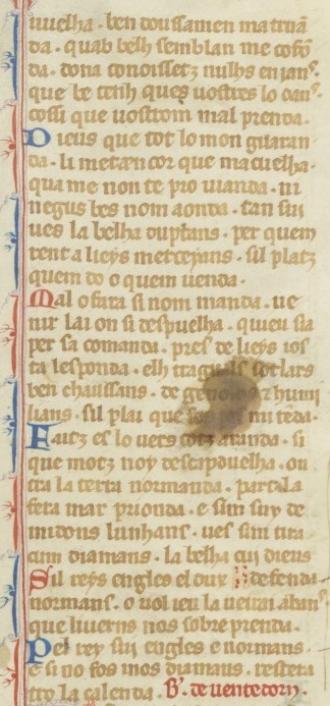 vuelha. ben doussamen ma truā
da. quab belh semblan me cofō
da. dona conoissetz nulhs enianˢ.
que be tenh ques vostres lo danˢ.
cossi que vostrom mal prenda.
Dieus que tot lo mon guaran
da. li meta en cor que macuelha.
qua me non te pro vianda. ni
negus bes nom aonda. tan sui
ves la belha duptans. per quem
rent a lieys merceyans. sil platz
quem do o quem uenda.
Mal o fara si nom manda. ve
nir lai on si despuelha. quieu sia
per sa comanda. pres de lieys ios
ta lesponda. elh tragu sotlars
ben chaussans. de ge humi
lians. sil plai que mi tēda.
Faitz es lo vers totz aranda. si
que motz noy descapduelha. ou
tra la terra normanda. part la
fera mar prionda. e sim suy de
midons lunhans. ves sim tira
cum diamans. la belha cui dieus
Sil reys engles el dux defenda
normans. o vol ieu la veirai abanˢ
que liverns nos sobreprenda.
Pel rey sui engles e normans.
e si no fos mos diamans. restera
tro la calenda. B̄. de ventedorn.